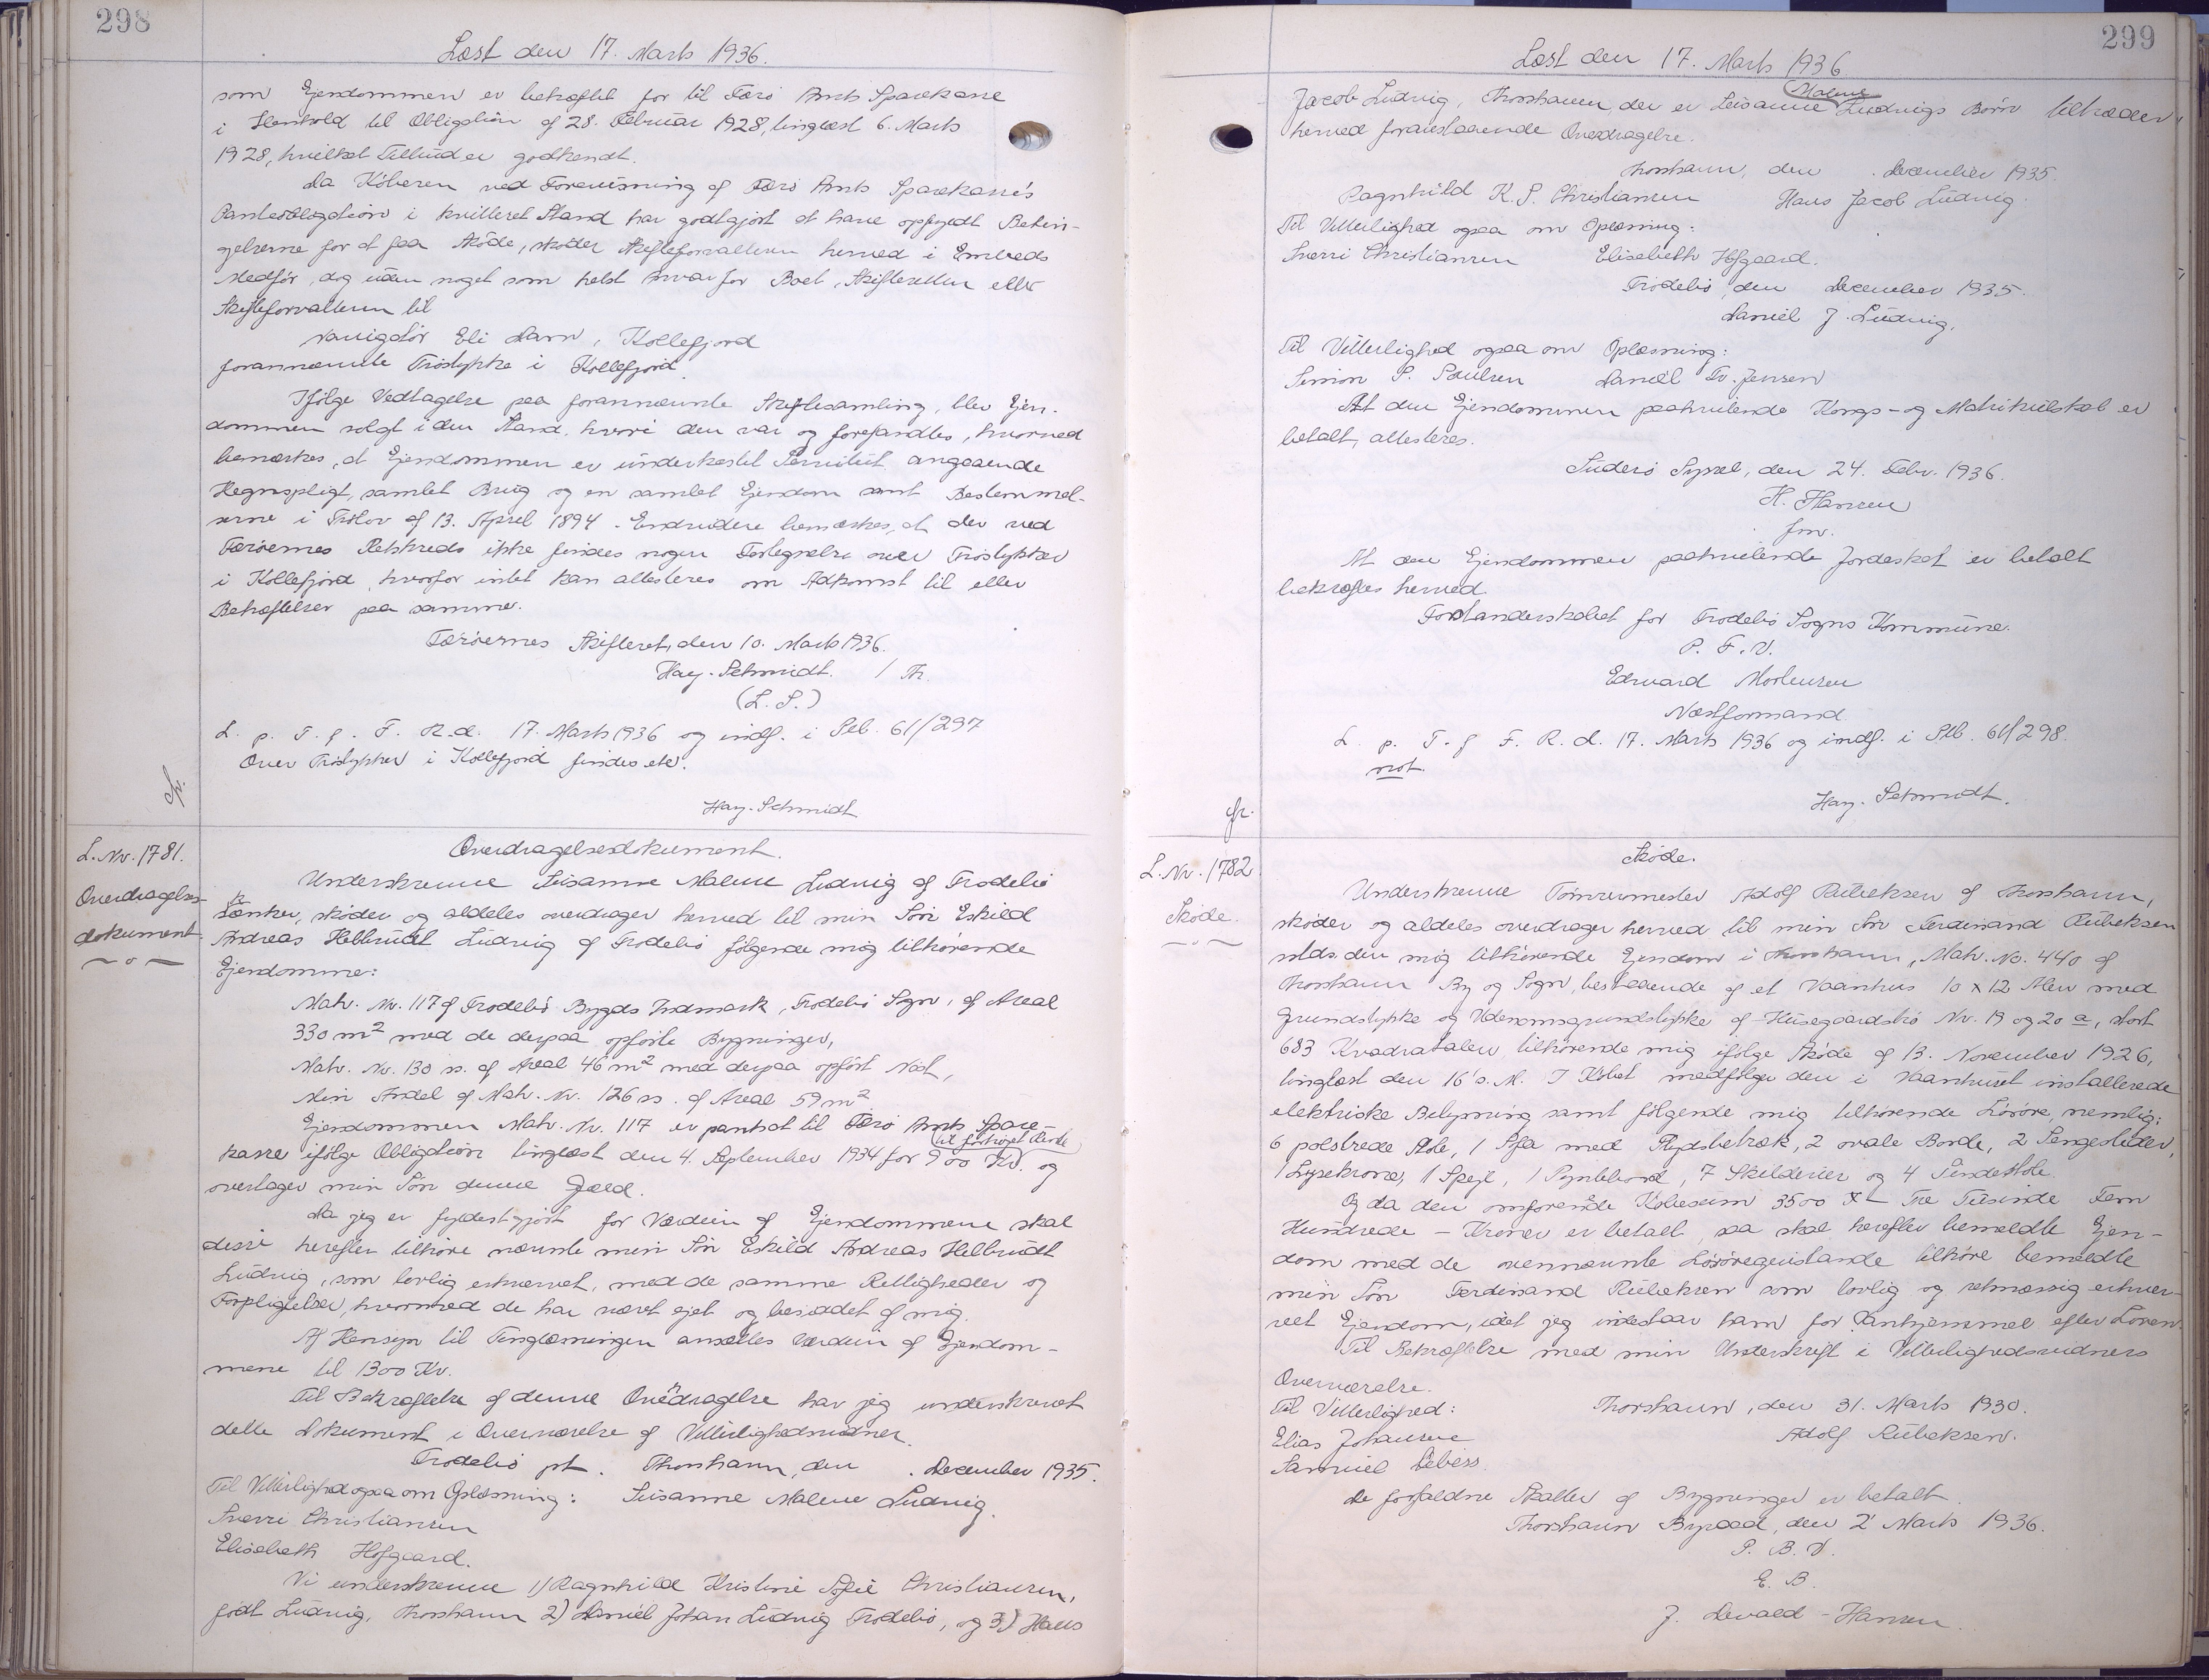 298
Læst den 17. Marts 1936.
som Ejendommen er behæftet for til Færø Amts Sparekasse
i Henhold til Obligation af 28. Februar 1928, tinglæst 6. Marts
1928, hvilket Tilbud er godkendt.
Da Køberen ved Forevisning af Færø Amts Sparekasse's
Panteobligation i kvitteret Stand har godtgjort at have opfyldt Betin-
gelserne for at faa Skøde, skøder Skifteforvalteren herved i Embeds
Medfør, dog uden noget som helst Ansvar for Boet, Skifteretten eller
Skifteforvalteren til
Navigatør Eli Dam, Kollefjord
forannævnte Trøstykke i Kollefjord.
Ifølge Vedtagelse paa forannævnte Skiftesamling, blev Ejen-
dommen solgt i den Stand, hvori den var og forefandtes, hvorved
bemærkes, at Ejendommen er underkastet Servitut angaaende
Hegnspligt, samlet Brug og en samlet Ejendom samt Bestemmel-
serne i Trølov af 13. April 1894. Endvidere bemærkes, at der ved
Færøernes Retskreds ikke findes nogen Fortegnelse over Trøstykker
i Kollefjord, hvorfor intet kan attesteres om Adkomst til eller
Behæftelser paa samme.
Færøernes Skifteret, den 10. Marts 1936.
Hay-Schmidt. / Th.
(L. S.)
L. p. T. f. F. R. d. 17. Marts 1936 og indf. i Slb. 61/297
Over Trøstykker i Kollefjord findes etc.
Hay-Schmidt
L. Nr. 1781.
Overdragelses-
dokument.
Overdragelsesdokument.
Underskrevne Susanne Malene Ludvig af Frodebø
skænker, skøder og aldeles overdrager herved til min Søn Eskild
Andreas Helbrudt Ludvig af Frodebø følgende mig tilhørende
Ejendomme:
Matr. Nr. 117 af Frodebø Bygds Indmark, Frodebø Sogn, af Areal
330 m² med de derpaa opførte Bygninger,
Matr. Nr. 130 ss. af Areal 46 m² med derpaa opført Nøst,
Min Andel af Matr. Nr. 126 ss. af Areal 59 m²
Ejendommen Matr. Nr. 117 er pantsat til Færø Amts Spare-
kasse ifølge Obligation tinglæst den 4. September 1934 for 900 Kr. og
overtager min Søn denne Gæld.
Da jeg er fyldestgjort for Værdien af Ejendommene skal
disse herefter tilhøre nævnte min Søn Eskild Andreas Helbrudt
Ludvig, som lovlig erhvervet, med de samme Rettigheder og
Forpligtelser, hvormed de har været ejet og besiddet af mig.
Af Hensyn til Tinglæsningen ansættes Værdien af Ejendom-
mene til 1300 Kr.
Til Bekræftelse af denne Overdragelse har jeg underskrevet
dette Dokument i Overværelse af Vitterlighedsvidner.
Frodebø pt. Thorshavn, den . December 1935.
Til Vitterlighed ogsaa om Oplæsning: Susanne Malene Ludvig.
Sverri Christiansen
Elisabeth Hofgaard.
Vi underskrevne 1) Ragnhild Kristine Sofie Christiansen,
født Ludvig, Thorshavn 2) Daniel Johan Ludvig Frodebø, og 3) Hans
299
Læst den 17. Marts 1936
Malene
Jacob Ludvig, Thorshavn, der er Susanne Ludvigs Børn tiltræder
herved foranstaaende Overdragelse.
Thorshavn, den . December 1935.
Ragnhild K. S. Christiansen Hans Jacob Ludvig.
Til Vitterlighed ogsaa om Oplæsning:
Sverri Christiansen Elisabeth Hofgaard.
Frodebø, den December 1935.
Daniel J. Ludvig.
Til Vitterlighed ogsaa om Oplæsning:
Simon P. Poulsen Daniel Fr. Jensen
At den Ejendommen paahvilende Kongs- og Matrikulskat er
betalt, attesteres.
Suderø Syssel, den 24. Febr. 1936.
H. Hansen
fm.
At den Ejendommen paahvilende Jordeskat er betalt
bekræftes herved.
Forstanderskabet for Frodebø Sogns Kommune.
P. F. V.
Edward Mortensen
Næstformand.
L. p. T. f. F. R. d. 17. Marts 1936 og indf. i Slb. 61/298.
not.
Hay-Schmidt.
L. Nr. 1782
Skøde.
Skøde.
Underskrevne Tømrermester Adolf Rubeksen af Thorshavn,
skøder og aldeles overdrager herved til min Søn Ferdinand Rubeksen
sstds. den mig tilhørende Ejendom i Thorshavn, Matr. No. 440 af
Thorshavn By og Sogn, bestaaende af et Vaanhus 10 x 12 Alen med
Grundstykke og Udenomsgrundstykke af Husegaardstrø Nr. 19 og 20 a, stort
683 Kvadratalen, tilhørende mig ifølge Skøde af 13. November 1926,
tinglæst den 16' s. M. I Købet medfølger den i Vaanhuset installerede
elektriske Belysning samt følgende mig tilhørende Løsøre, nemlig:
6 polstrede Stole, 1 Sofa med Plydsbetræk, 2 ovale Borde, 2 Sengesteder,
1 Lysekrone, 1 Spejl, 1 Pyntebord, 7 Skilderier og 4 Pindestole.
Og da den omforenede Købesum 3500 Kr Tre Tusinde Fem
Hundrede - Kroner er betalt, saa skal herefter bemeldte Ejen-
dom med de ovennævnte Løsøregenstande tilhøre bemeldte
min Søn Ferdinand Rubeksen som lovlig og retmæssig erhver-
vet Ejendom, idet jeg indestaar ham for Vanhjemmel efter Loven.
Til Bekræftelse med min Underskrift i Vitterlighedsvidners
Overværelse.
Til Vitterlighed: Thorshavn, den 31. Marts 1930.
Elias Johansen Adolf Rubeksen.
Samuel Debess.
De forfaldne Skatter af Bygninger er betalt.
Thorshavn Byraad, den 2' Marts 1936.
P. B. V.
E. B.
J. Dewald-Hansen.